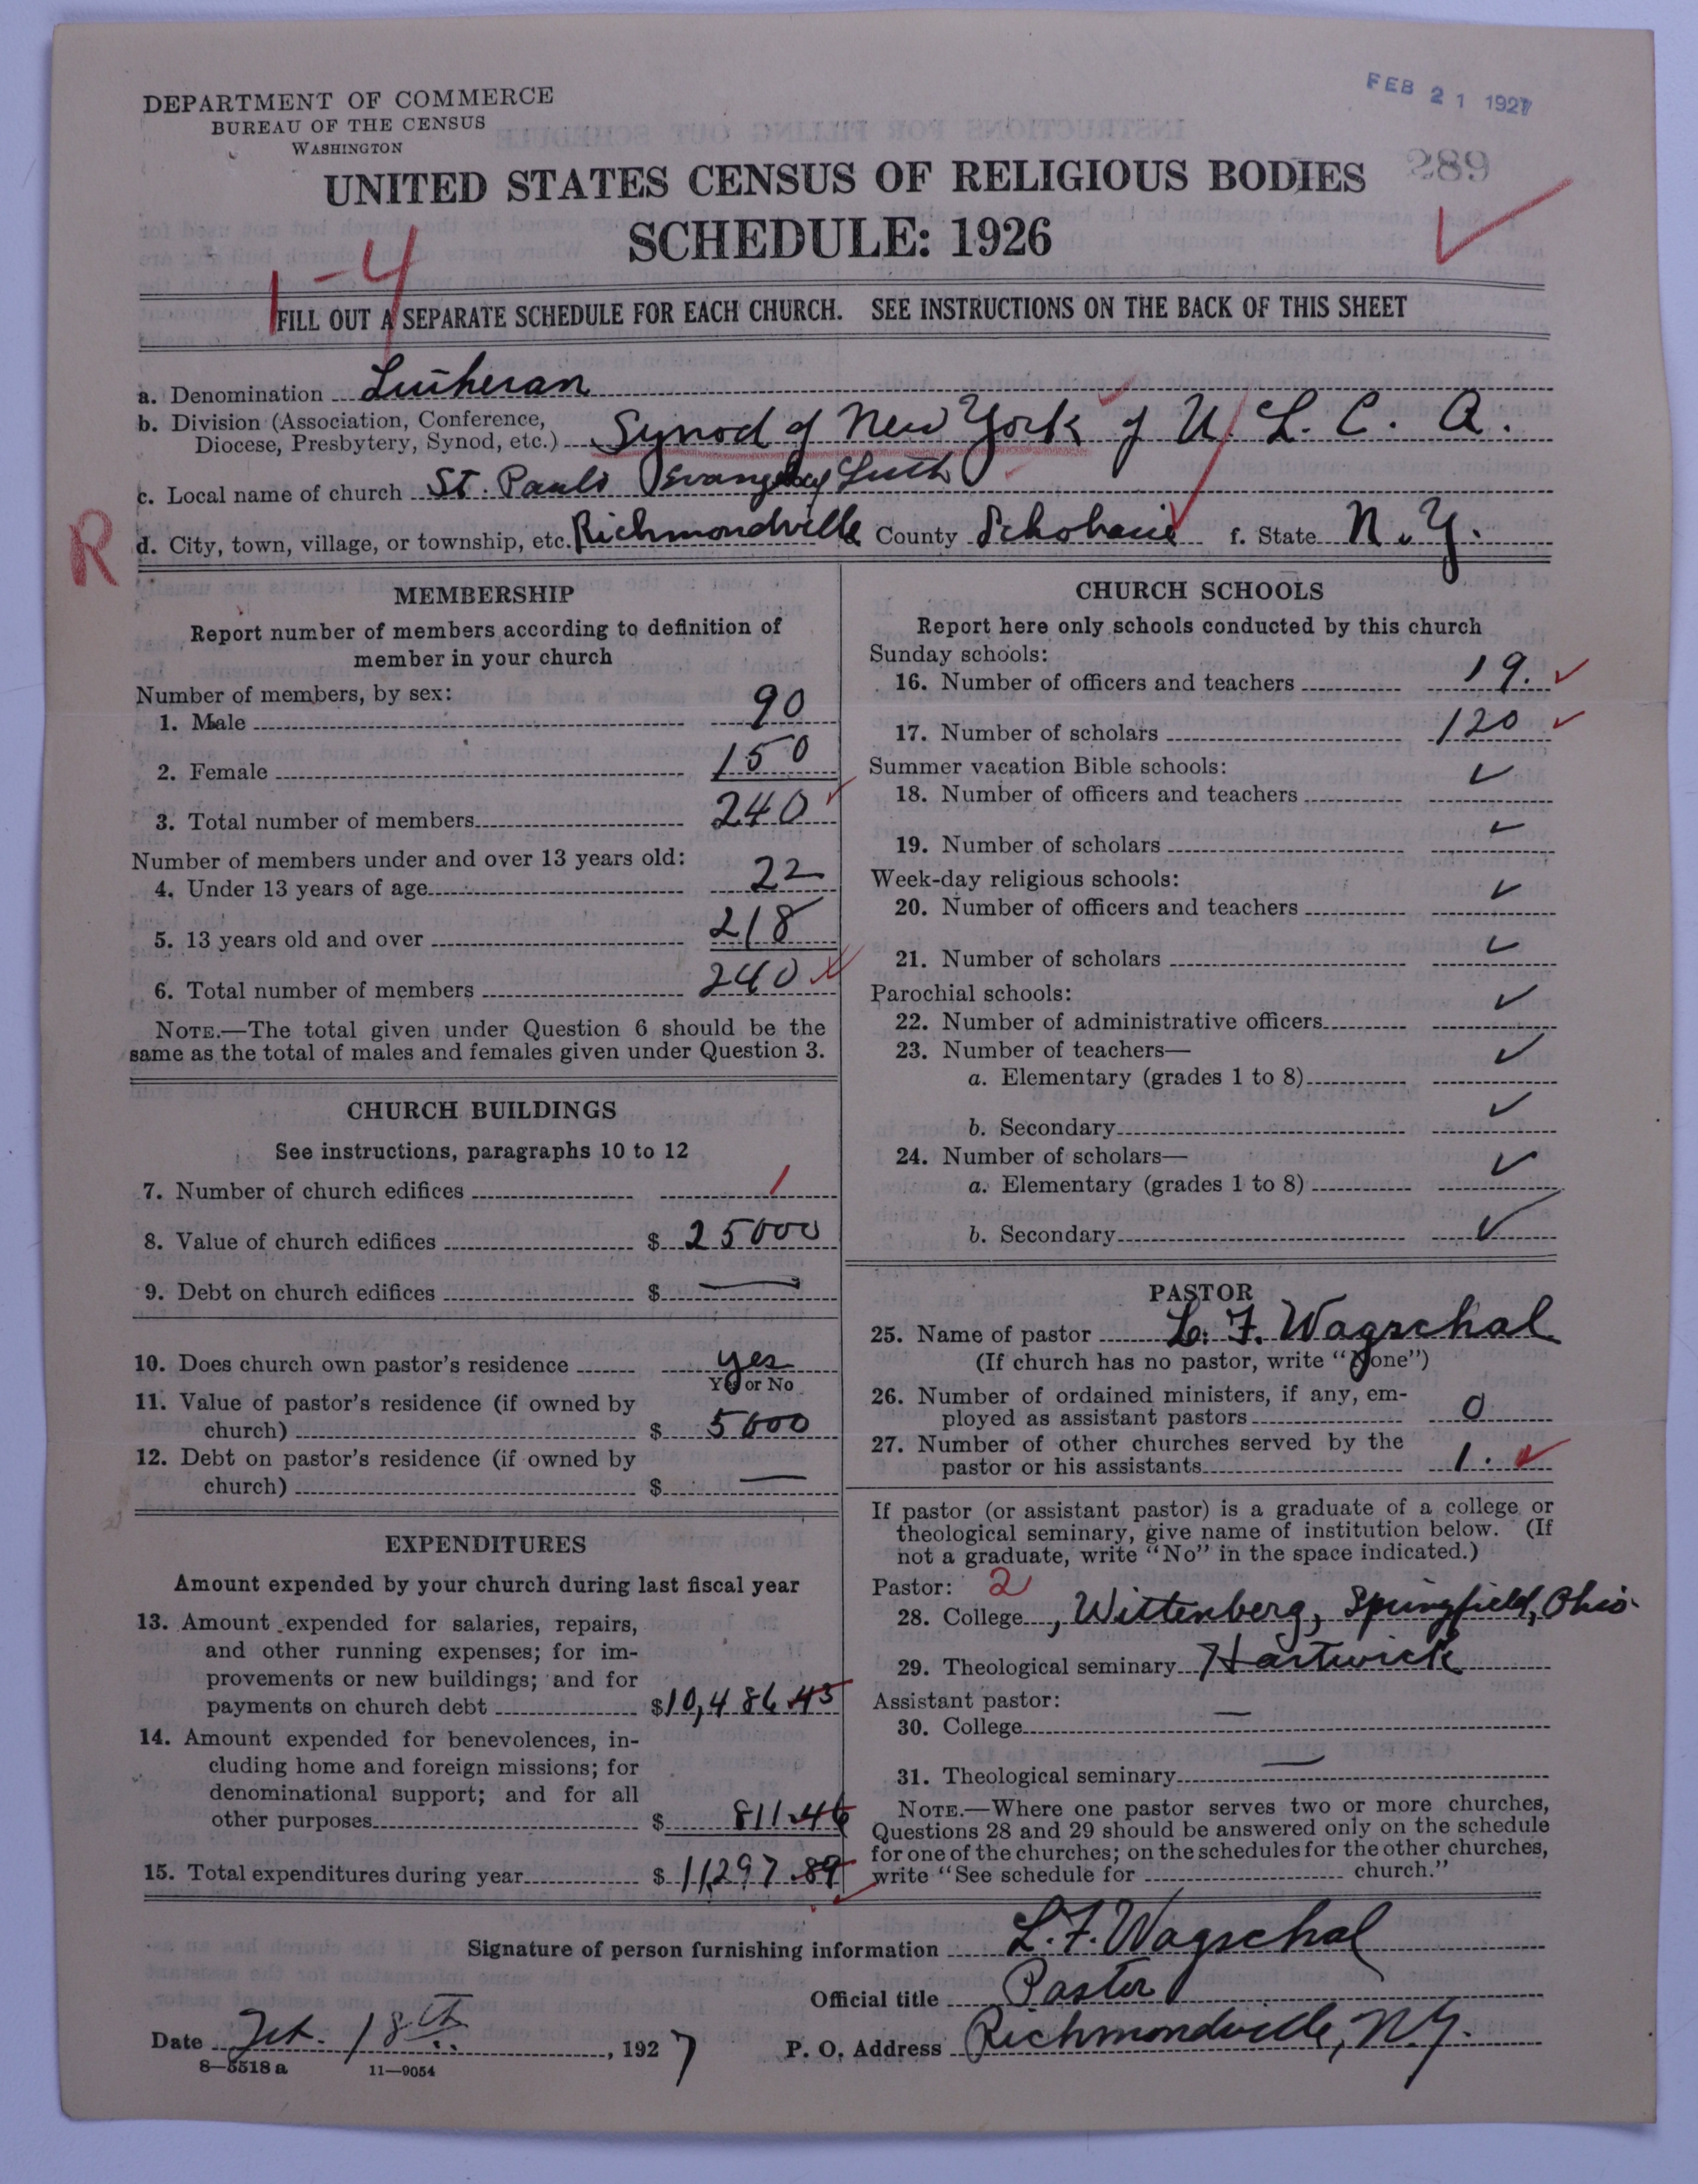 FEB 21 1927
DEPARTMENT OF COMMERCE
BUREAU OF THE CENSUS
WASHINGTON
289
UNITED STATES CENSUS OF RELIGIOUS BODIES
SCHEDULE: 1926
1-4
FILL OUT A SEPARATE SCHEDULE FOR EACH CHURCH. SEE INSTRUCTIONS ON THE BACK OF THIS SHEET
a. Denomination Lutheran
b. Division (Association, Conference,
Diocese, Presbytery, Synod, etc.) Synod of New York of U. L. C. A.
c. Local name of church St. Pauls Luth
R
d. City, town, village, or township, etc. Richmondville County Schoharie f. State N. Y.
MEMBERSHIP
Report number of members according to definition of
member in your church
Number of members, by sex:
1. Male 90
2. Female 150
3. Total number of members 240
Number of members under and over 13 years old:
4. Under 13 years of age 22
5. 13 years old and over 218
6. Total number of members 240
NOTE.—The total given under Question 6 should be the
same as the total of males and females given under Question 3.
CHURCH BUILDINGS
See instructions, paragraphs 10 to 12
7. Number of church edifices 1
8. Value of church edifices $ 25000
9. Debt on church edifices $ —
10. Does church own pastor's residence yes
Yes or No
11. Value of pastor's residence (if owned by
church) $ 5000
12. Debt on pastor's residence (if owned by
church) $ —
EXPENDITURES
Amount expended by your church during last fiscal year
13. Amount expended for salaries, repairs,
and other running expenses; for im-
provements or new buildings; and for
payments on church debt $10,486 43
14. Amount expended for benevolences, in-
cluding home and foreign missions; for
denominational support; and for all
other purposes $ 811.46
15. Total expenditures during year $ 11,297.89
CHURCH SCHOOLS
Report here only schools conducted by this church
Sunday schools:
16. Number of officers and teachers 19.
17. Number of scholars 120
Summer vacation Bible schools:
18. Number of officers and teachers ✓
19. Number of scholars ✓
Week-day religious schools:
20. Number of officers and teachers ✓
21. Number of scholars ✓
Parochial schools:
22. Number of administrative officers ✓
23. Number of teachers—
a. Elementary (grades 1 to 8) ✓
b. Secondary ✓
24. Number of scholars—
a. Elementary (grades 1 to 8) ✓
b. Secondary ✓
PASTOR
25. Name of pastor L. F. Wagschal
(If church has no pastor, write "None")
26. Number of ordained ministers, if any, em-
ployed as assistant pastors 0
27. Number of other churches served by the
pastor or his assistants 1.
If pastor (or assistant pastor) is a graduate of a college or
theological seminary, give name of institution below. (If
not a graduate, write "No" in the space indicated.)
Pastor: 2
28. College, Wittenberg, Springfield, Ohio.
29. Theological seminary Hartwick
Assistant pastor:
30. College —
31. Theological seminary —
NOTE.—Where one pastor serves two or more churches,
Questions 28 and 29 should be answered only on the schedule
for one of the churches; on the schedules for the other churches,
write "See schedule for church."
Signature of person furnishing information L. F. Wagschal
Official title Pastor
Date Feb. 18th, 1927 P. O. Address Richmondville, N.Y.
8—5518 a 11—9054